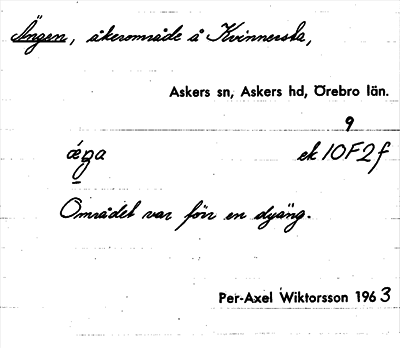 Ängen, åkerområde å Kvinnersta,
Askers sn, Askers hd, Örebro län.
9
æga ek 10F2f
Området var förr en dyäng.
Per-Axel Wiktorsson 1963